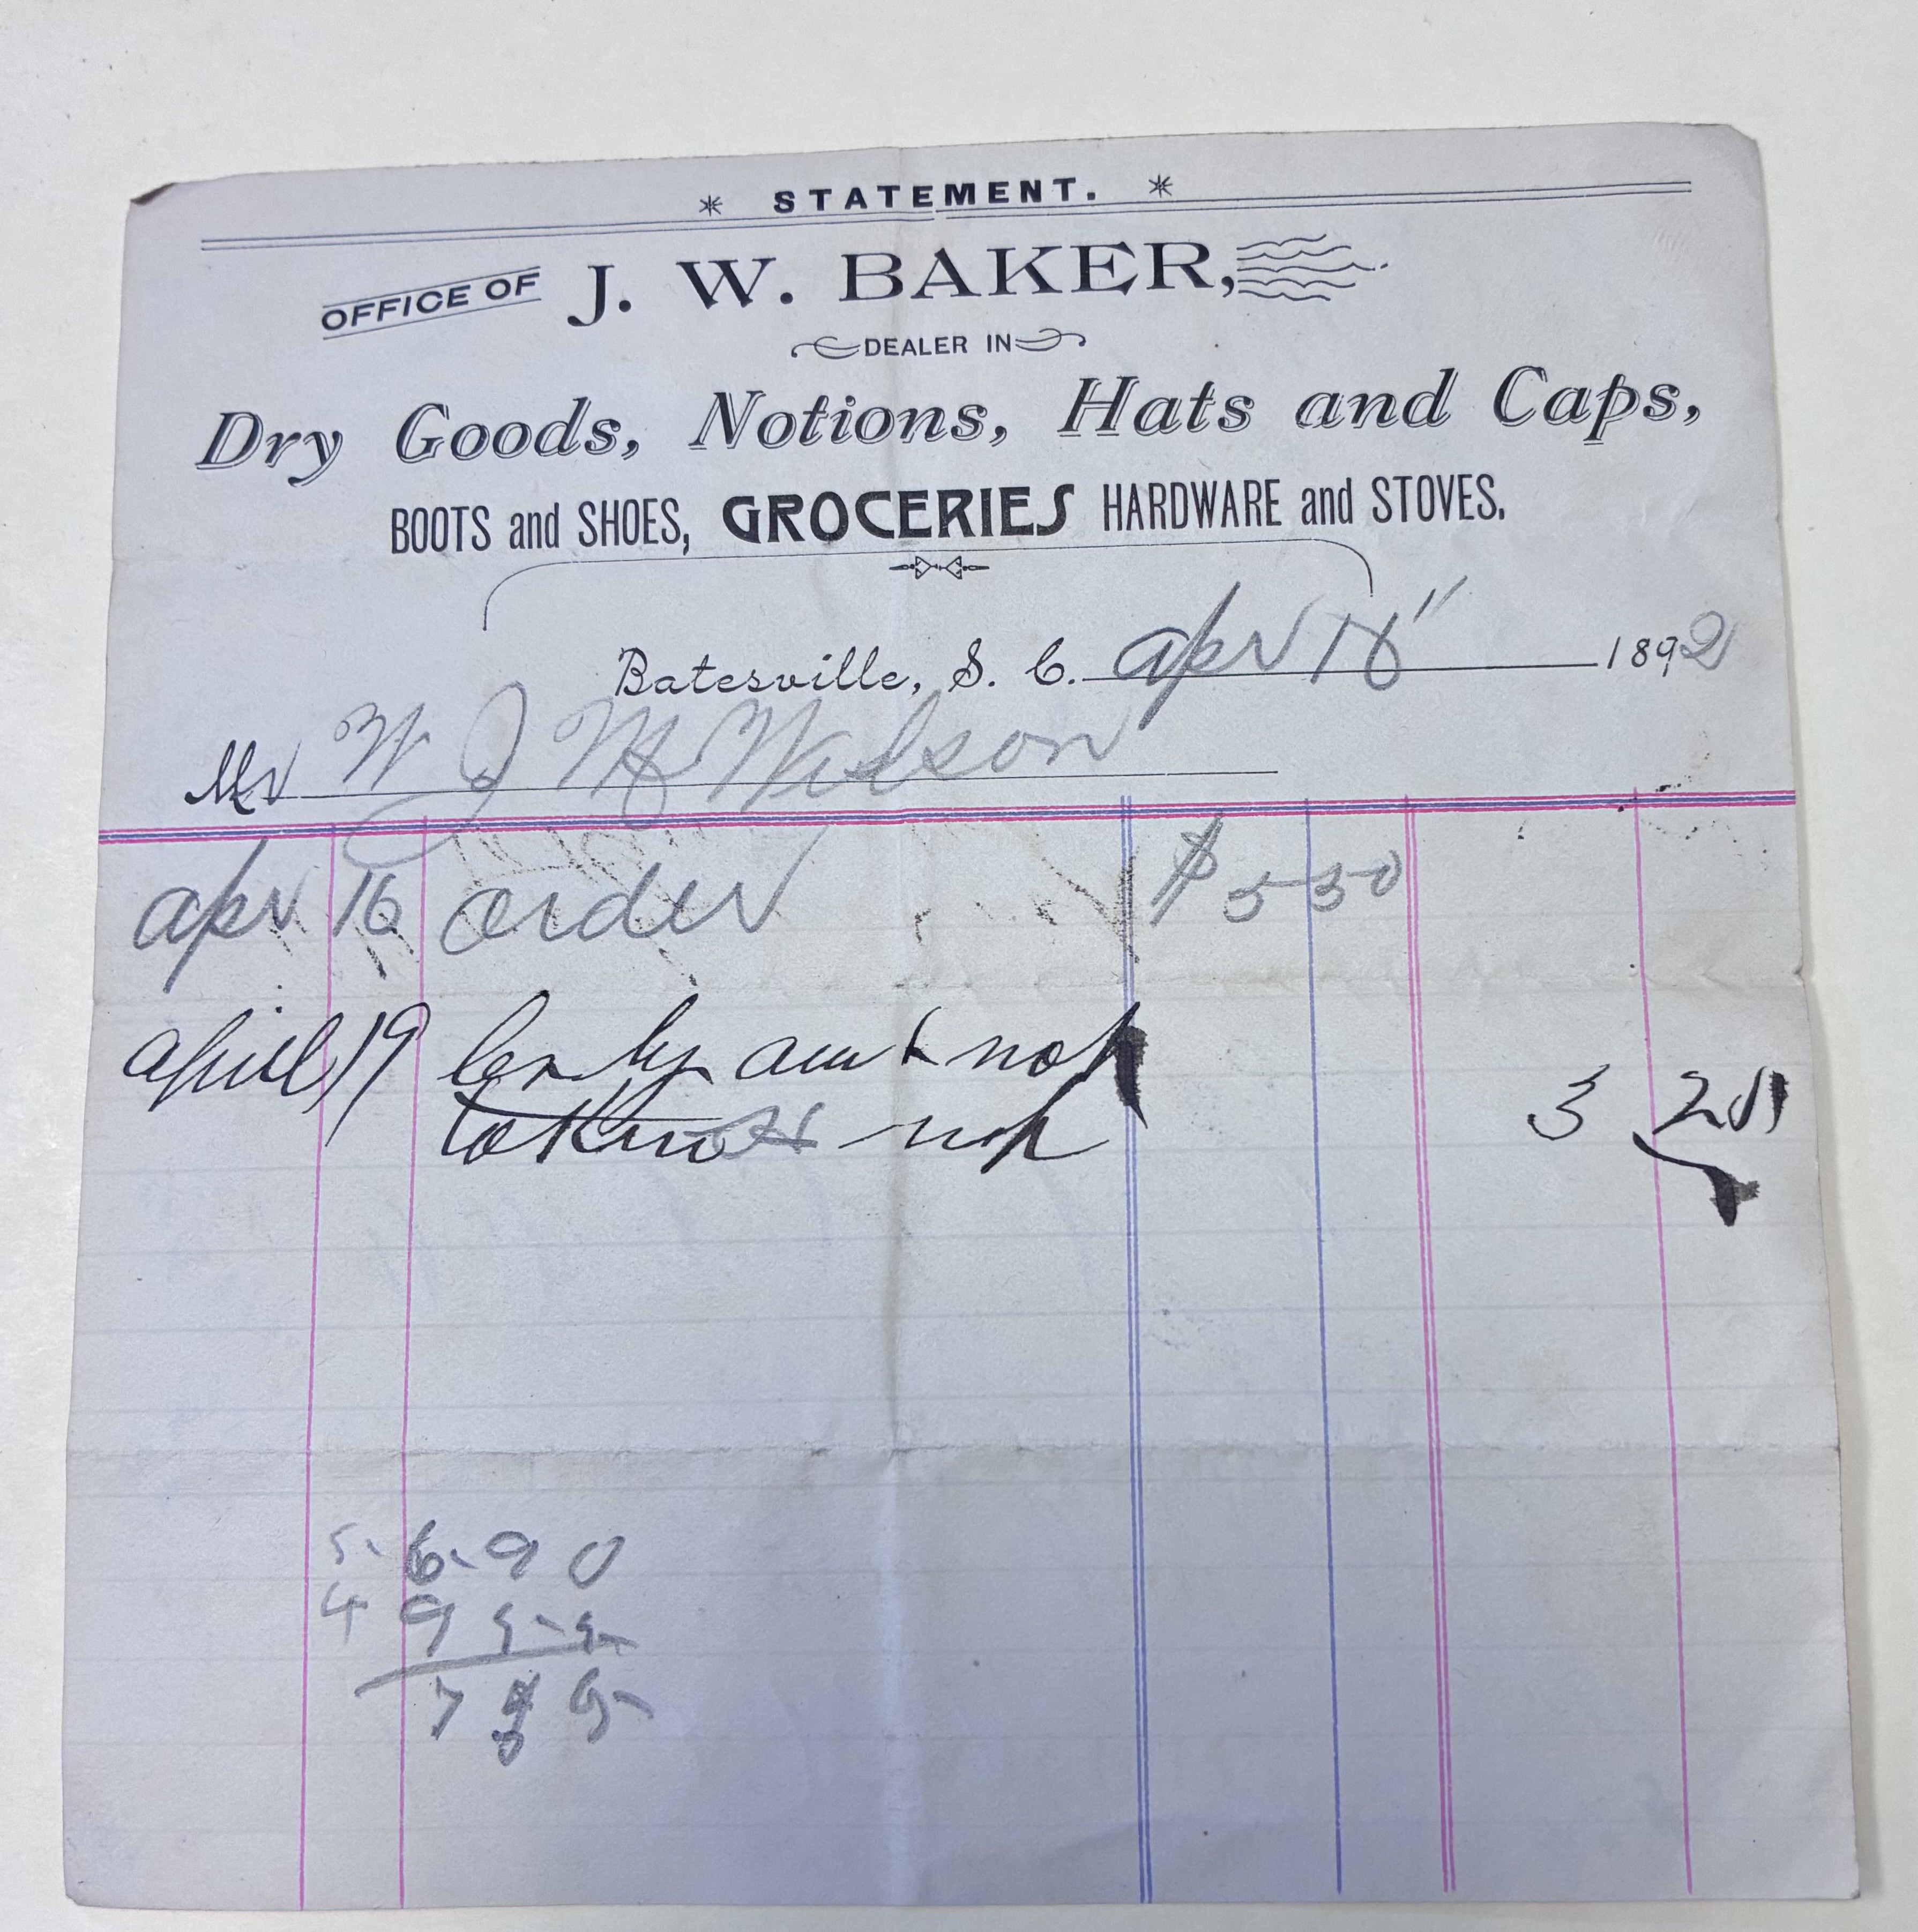 * STATEMENT. *
OFFICE OF J. W. BAKER,
DEALER IN
Dry Goods, Notions, Hats and Caps,
BOOTS and SHOES, GROCERIES HARDWARE and STOVES.
Batesville, S. C. apr 16" 1892
Mr W J Watson
apr 16 order $ 5 50
april 19 Cr by amt not 3 20
taken up
5. 6. 9 0
4 9 5 5
7 5